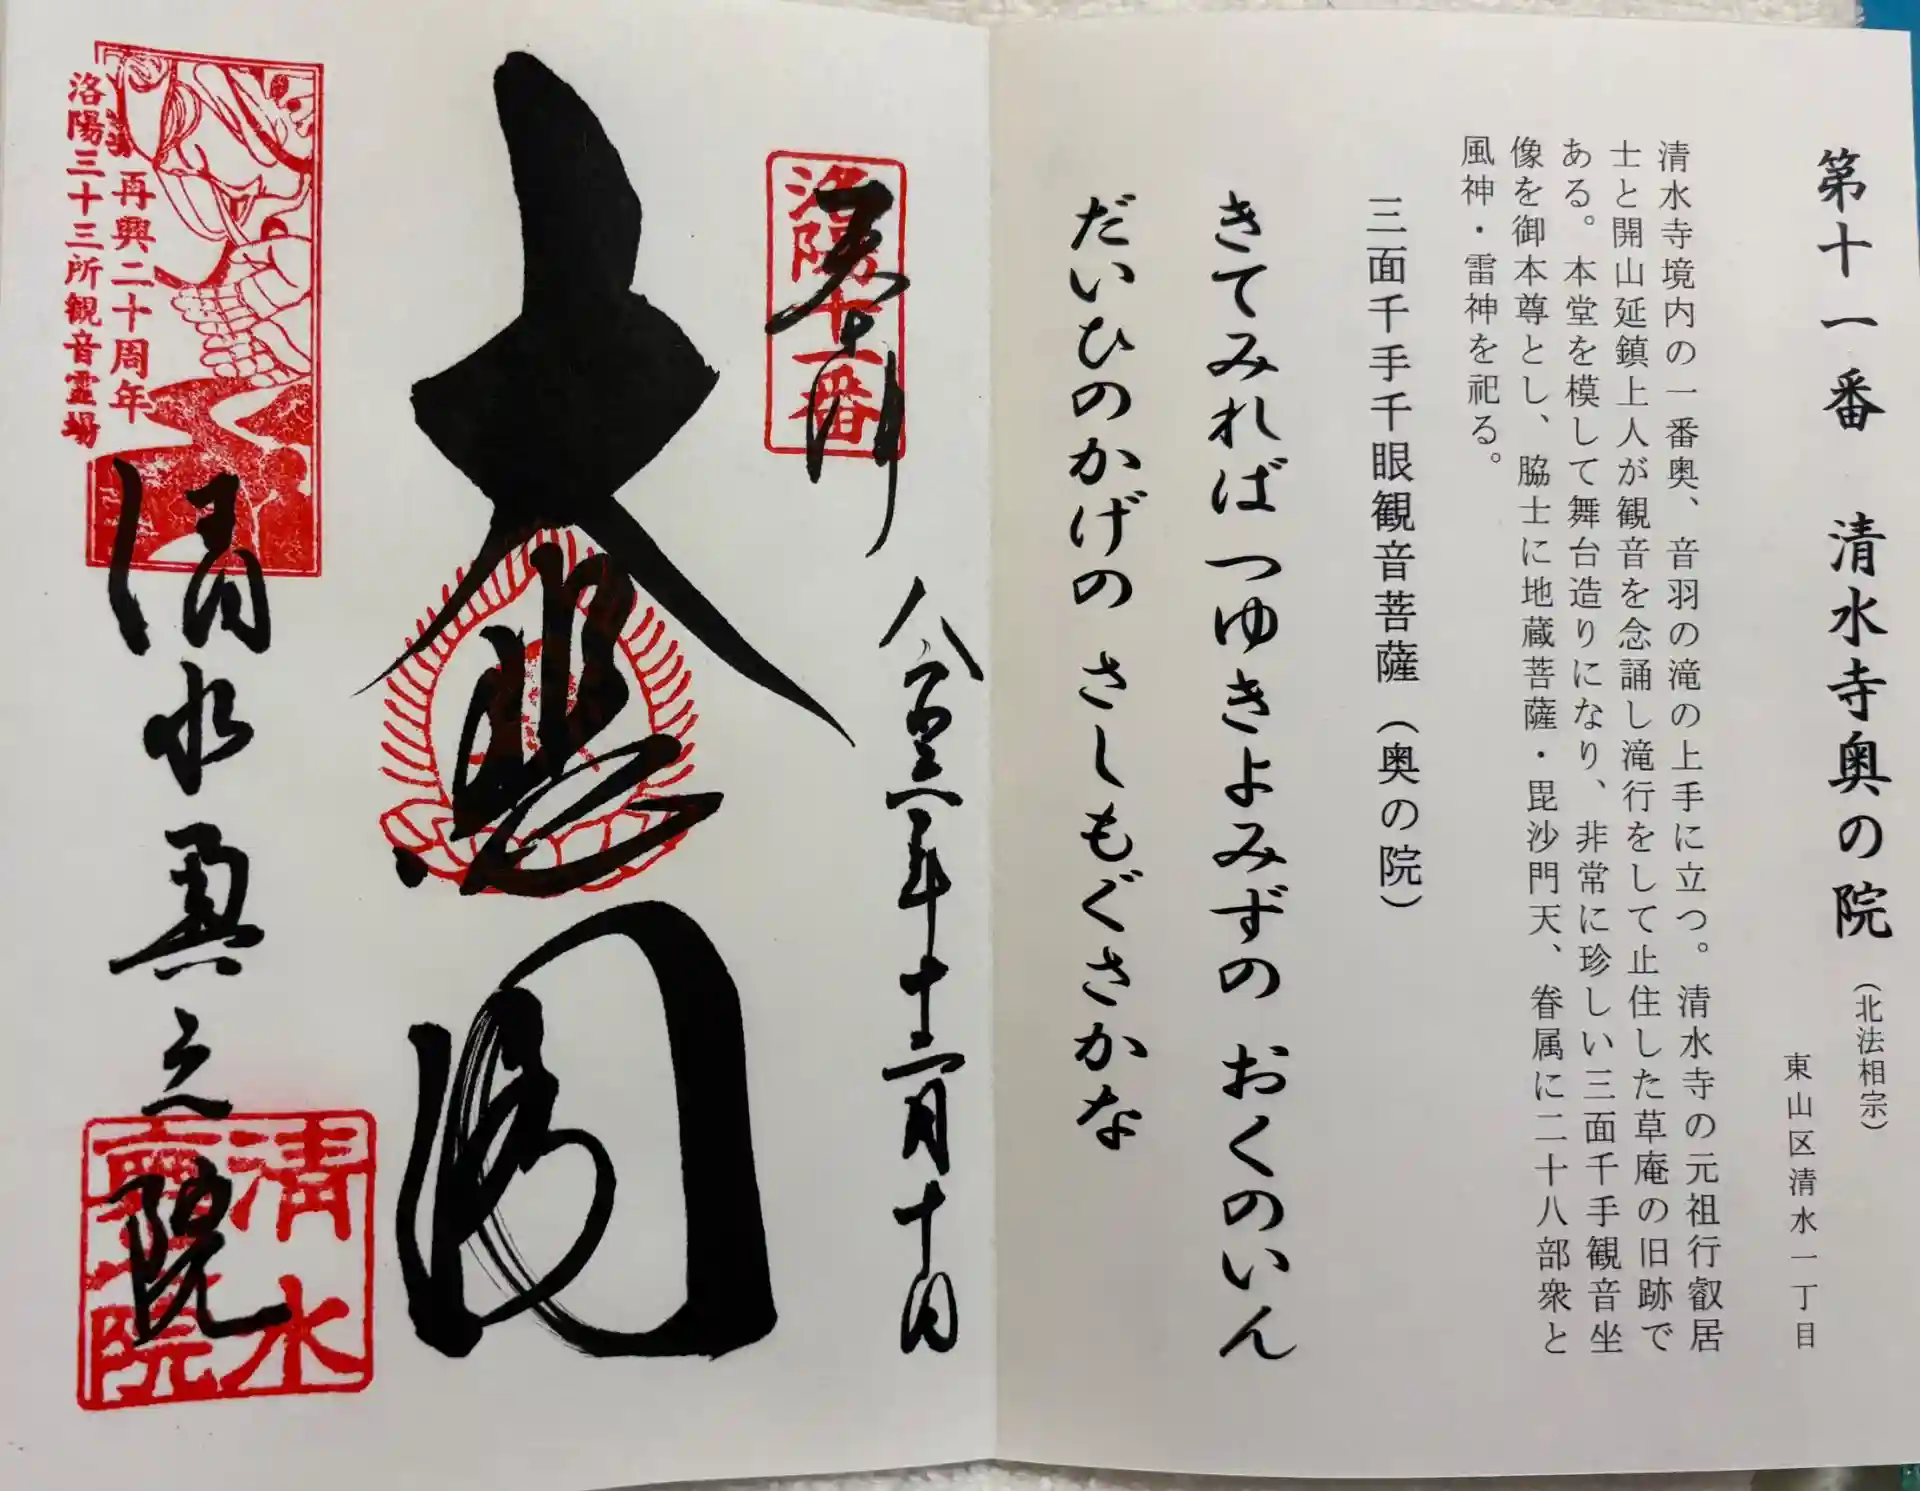 第十一番 清水寺奥の院(北法相宗)
東山区清水一丁目
清水寺境内の一番奥、音羽の滝の上手に立つ。清水寺の元祖行叡居
士と開山延鎮上人が観音を念誦し滝行をして止住した草庵の旧跡で
ある。本堂を模して舞台造りになり、非常に珍しい三面千手観音坐
像を御本尊とし、脇士に地蔵菩薩・毘沙門天、眷属に二十八部衆と
風神・雷神を祀る。
三面千手千眼観音菩薩(奥の院)
きてみればつゆきよみずの おくのいん
だいひのかげの さしもぐさかな
洛陽十一番
奉拝
十二月十日
大悲閣
再興二十周年
洛陽三十三所観音霊場
清水奥之院
清水奥院